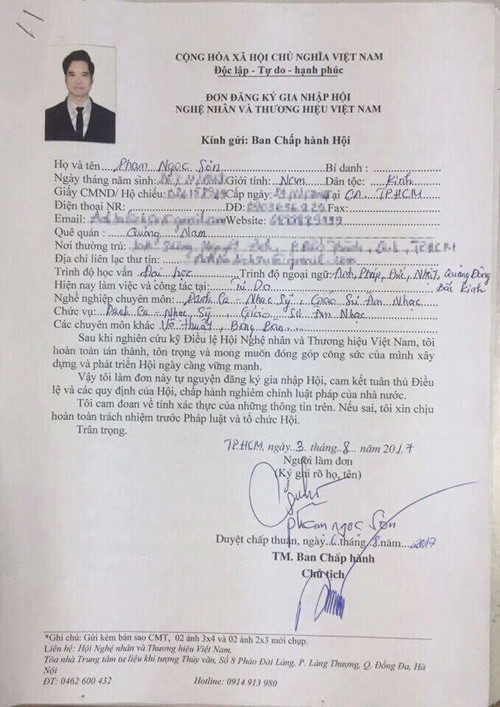 11
CỘNG HÒA XÃ HỘI CHỦ NGHĨA VIỆT NAM
Độc lập - Tự do - hạnh phúc
ĐƠN ĐĂNG KÝ GIA NHẬP HỘI
NGHỆ NHÂN VÀ THƯƠNG HIỆU VIỆT NAM
Kính gửi: Ban Chấp hành Hội
Họ và tên Phạm Ngọc Sơn Bí danh :
Ngày tháng năm sinh: Giới tính: Nam Dân tộc: Kinh
Giấy CMND/ Hộ chiếu: Cấp ngày tại CA TP.HCM
Điện thoại NR: DĐ: Fax:
Email: Website:
Quê quán : Quảng Nam
Nơi thường trú: TP.HCM
Địa chỉ liên lạc thư tín:
Trình độ học vấn Đại học Trình độ ngoại ngữ: Anh, Pháp, Đức, Nhật, Quảng Đông
Hiện nay làm việc và công tác tại: Tự Do Bắc Kinh
Nghề nghiệp chuyên môn: Danh Ca - Nhạc Sỹ, Giáo Sư Âm Nhạc
Chức vụ: Danh Ca - Nhạc Sỹ, Giáo Sư Âm Nhạc
Các chuyên môn khác Võ thuật, Bóng Bàn
Sau khi nghiên cứu kỹ Điều lệ Hội Nghệ nhân và Thương hiệu Việt Nam, tôi
hoàn toàn tán thành, tôn trọng và mong muốn đóng góp công sức của mình xây
dựng và phát triển Hội ngày càng vững mạnh.
Vậy tôi làm đơn này tự nguyện đăng ký gia nhập Hội, cam kết tuân thủ Điều
lệ và các quy định của Hội, chấp hành nghiêm chỉnh luật pháp của nhà nước.
Tôi cam đoan về tính xác thực của những thông tin trên. Nếu sai, tôi xin chịu
hoàn toàn trách nhiệm trước Pháp luật và tổ chức Hội.
Trân trọng.
TP.HCM, ngày 3 tháng 8 năm 2017
Người làm đơn
(Ký ghi rõ họ, tên)
phạm ngọc Sơn
Duyệt chấp thuận, ngày tháng 8 năm 2017
TM. Ban Chấp hành
Chủ tịch
*Ghi chú: Gửi kèm bản sao CMT, 02 ảnh 3x4 và 02 ảnh 2x3 mới chụp.
Liên hệ: Hội Nghệ nhân và Thương hiệu Việt Nam.
Tòa nhà Trung tâm tư liệu khí tượng Thủy văn, Số 8 Pháo Đài Láng, P. Láng Thượng, Q. Đống Đa, Hà
Nội
ĐT: 0462 600 432 Hotline: 0914 913 980